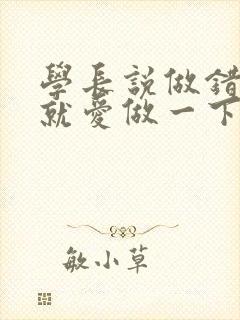 學長説做錯
就愛做一下
敏小草